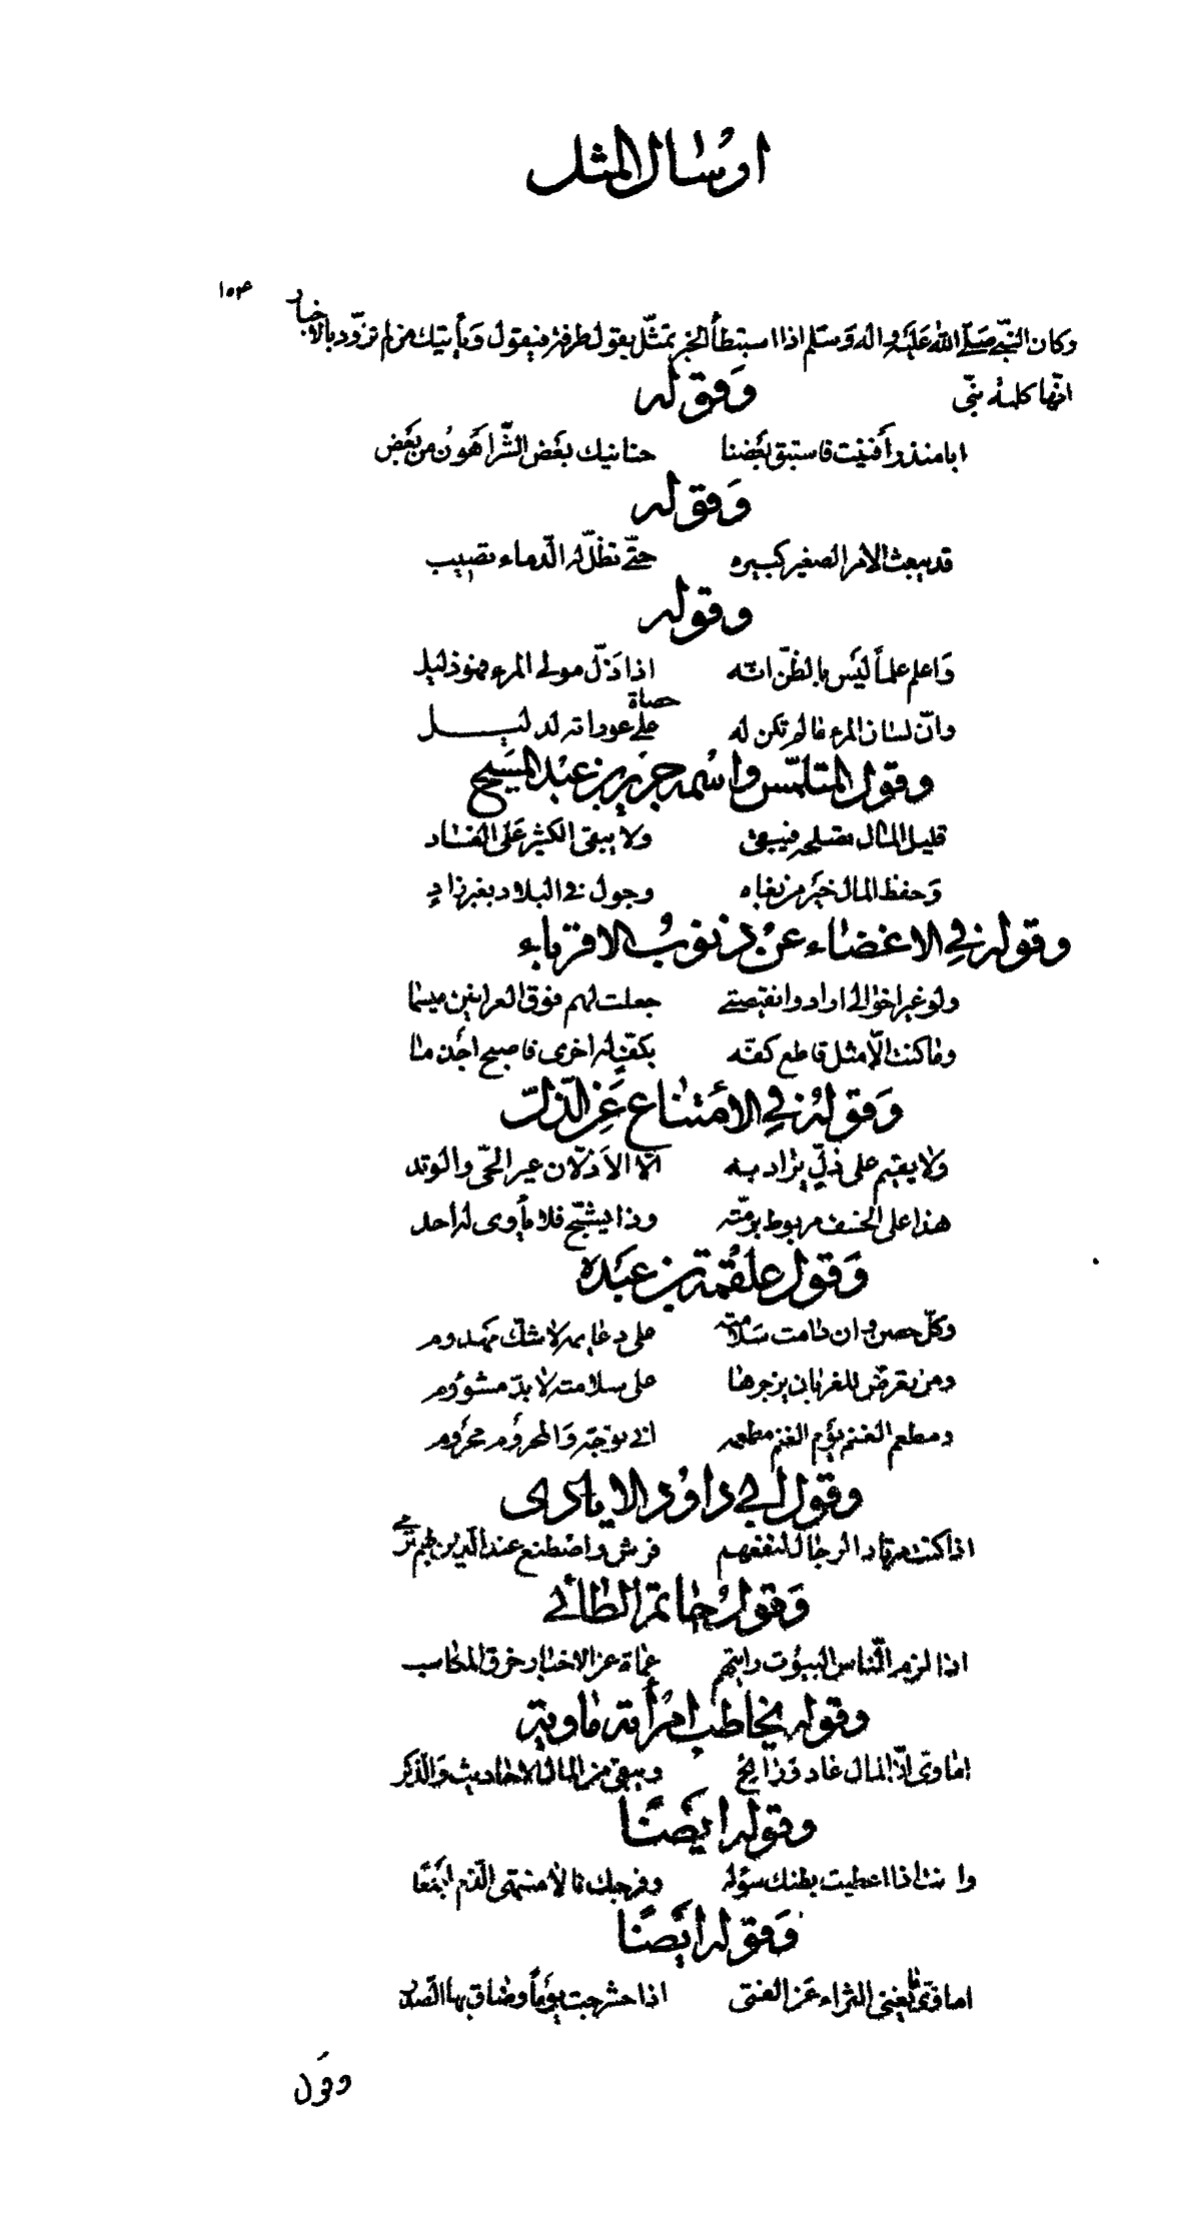 ارسال المثل
١٥٣
وكان النبّي صَلّى اللّٰه عَلَيْه واله وَسَلم اذا استبطأ الخبر تمثّل بقول طرفة فيقول وَيأتيك من لم تزوّد بالاخبار
انّها كلمة نبّي
وَقوله
ابا منذر أفنيت فاستبق بَعْضنا حنانيك بَعْض الشّر اهَونُ من بَعْض
وَقوله
قد يبعث الامر الصغير كبيره حتّى تظلّ له الدّماء تصبب
وقوله
وَاعلم علماً ليَس بالظنّ انّه اذا ذلّ مولى المرء فهو ذليل
وانّ لسان المرء ما لم تكن له حصاة على عوراته لدليل
وقول المتلمّس واسْمه جرير بن عبْد المسَيح
قليل المال تصلحه فيبقى ولا يبقى الكثير عَلى الفساد
وَحفظ المال خيَر من بغاه وجول في البلاد بغير زادٍ
وقوله في الاغضاء عنْ ذنوبُ الاقرباء
ولو غير اخوالى ارادوا نقيصتى جعلت لهم فوق العرانين ميسما
وما كنت الّا مثل قاطع كفّه بكفٍّ له اخرى فاصبح اجْذما
وَقولهُ في الأمْتناع عَن الذّلّ
ولا يقيم على ذلٍّ يراد به الّا الاَذلّان عير الحّى والوتد
هذا على الخسف مربوط برمّته وذا يشّج فلا يأوى له احد
وَقول علقمة بن عبَدة
وكلّ حصن وان دامت سَلامته على دعايمه لا شكّ مهدوم
ومن تعرّض للغربان يزجرها على سلامته لا بدّ مشؤوم
ومطعم الغنم يوْم الغنم مطعمه انى توجّه وَالمحروْم محروْم
وقول ابى داوُد الايادى
اذا كنت مرتاد الرجال لنفعهم فرش واصْطنع عند الّذين بهم ترْمى
وَقولُ حاتم الطائى
اذا لزم النّاس البيوْت رايتهم عماة عن الاخبار خرق المكاسب
وقوله يخاطب امْرأته ماوية
اماوىّ انّ المال غاد وَرايح ويبقى من المال الاحاديث وَالذّكر
وقوله ايَضًا
وانت اذا اعطيت بطنك سؤله وفرجك نالا منتهى الذّم اجْمَعَا
وَقوله ايَضًا
اماوىّ ما يغنى الثراء عَن الفتى اذا حشرجت يوَماً وضاق بها الصّدر
وقَول